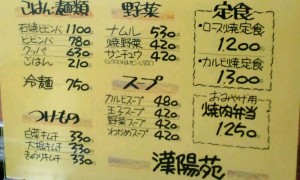 ごはん・麺類
石焼ビビンバ 1100
ビビンバ 780
クッパ 630
ごはん 210
冷麺 750
つけもの
白菜キムチ 330
大根キムチ 330
きゅうりキムチ 330
野菜
ナムル 530
焼野菜 420
サンチュウ 420
スープ
カルビスープ 480
玉子スープ 420
野菜スープ 420
わかめスープ 420
定食
・ロース焼定食
1200
・カルビ焼定食
1300
おみやげ用
焼肉弁当
1250
漢陽苑